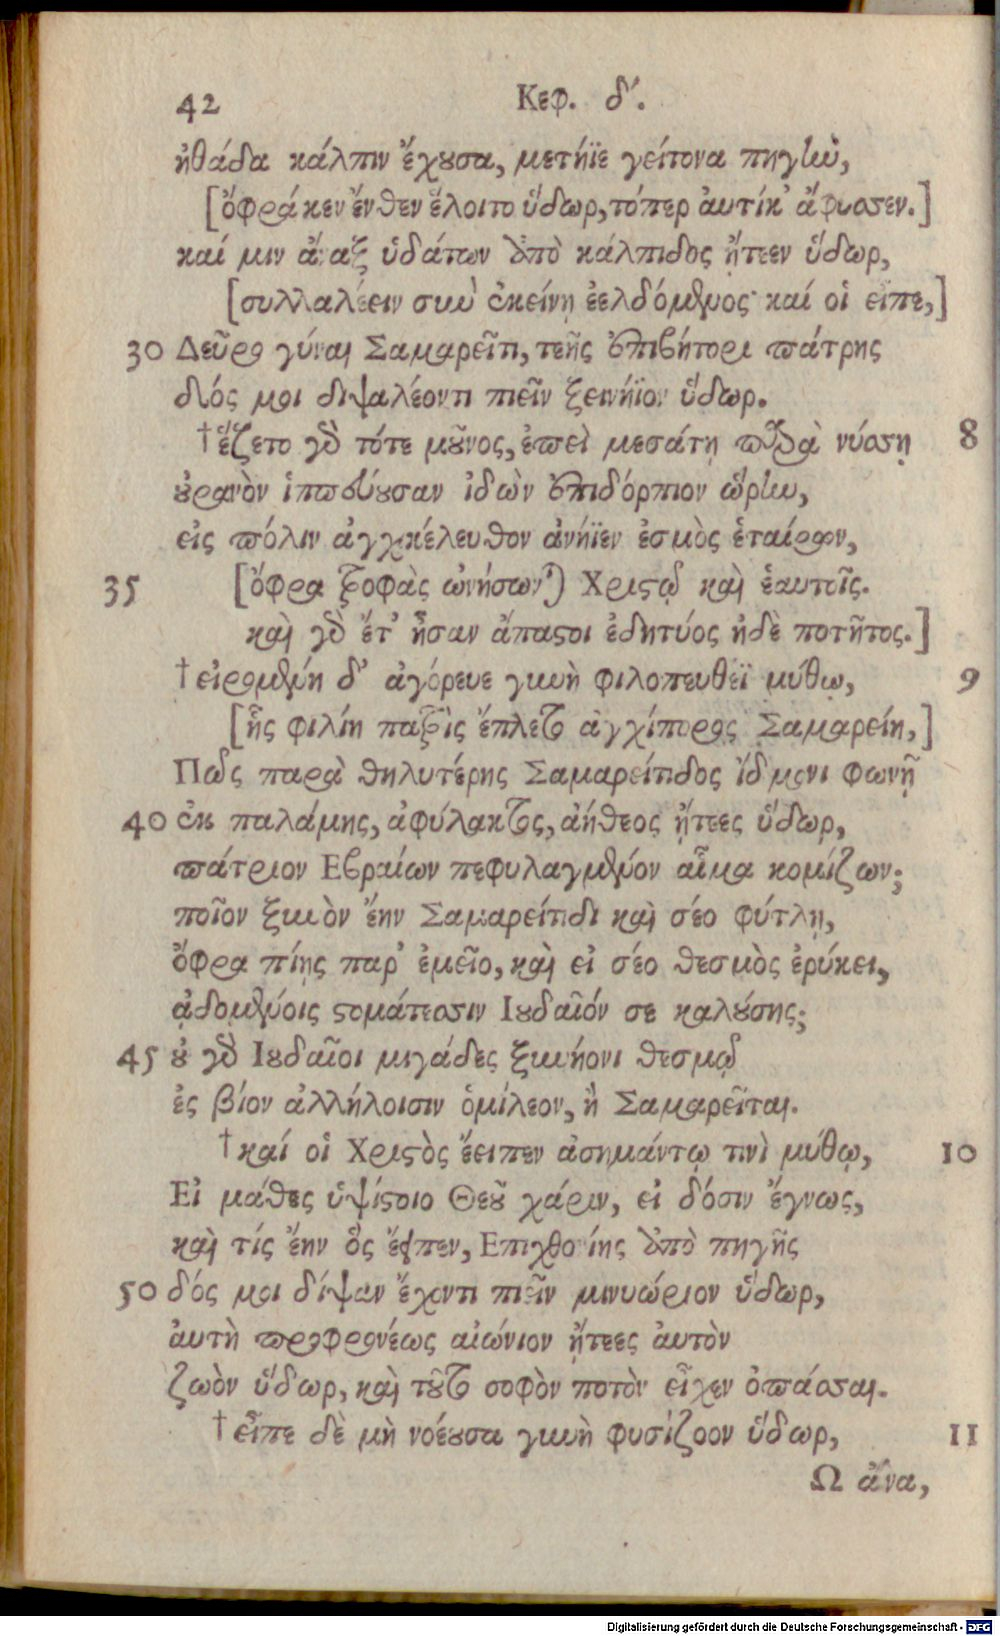 42 Κεφ. δ΄.
ἠθάδα κάλπιν ἔχουσα, μετήϊε γείτονα πηγὴν,
[ὄφρά κεν ἔνθεν ἕλοιτο ὕδωρ, τόπερ ἀυτίκ᾽ ἄφυσσεν.]
καί μιν ἄναξ ὑδάτων ἀπὸ κάλπιδος ᾔτεεν ὕδωρ,
[συλλαλέειν σὺν ἐκείνῃ ἐελδόμενος· καί οἱ εἶπε,]
30 Δεῦρο γύναι Σαμαρεῖτι, τεῆς ἐπιβήτορι πάτρης
δός μοι διψαλέοντι πιεῖν ξεινήϊον ὕδωρ.
†ἕζετο γὰρ τότε μοῦνος, ἐπεὶ μεσάτῃ παρὰ νύσσῃ 8
οὐρανὸν ἱππεύουσαν ἰδὼν ἐπιδόρπιον ὥρην,
εἰς πόλιν ἀγχικέλευθον ἀνήϊεν ἑσμὸς ἑταίρων,
35 [ὄφρα τροφὰς ὠνήσωνται Χριστῷ καὶ ἑαυτοῖς.
καὶ γὰρ ἔτ᾽ ἦσαν ἄπαστοι ἐδητύος ἠδὲ ποτῆτος.]
†εἰρομένη δ᾽ ἀγόρευε γυνὴ φιλοπευθέϊ μύθῳ, 9
[ἧς φιλίη πατρὶς ἔπλετο ἀγχίπορος Σαμαρείη,]
Πῶς παρὰ θηλυτέρης Σαμαρείτιδος ἴδμονι φωνῇ
40 ἐκ παλάμης, ἀφύλακτος, ἀήθεος ᾔτεες ὕδωρ,
πάτριον Εβραίων πεφυλαγμένον αἷμα κομίζων;
ποῖον ξυνὸν ἔην Σαμαρείτιδι καὶ σέο φύτλῃ,
ὄφρα πίῃς παρ᾽ ἐμεῖο, καὶ εἰ σέο θεσμὸς ἐρύκει,
ᾀδομένοις στομάτεσσιν Ιουδαῖόν σε καλούσης;
45 οὐ γὰρ Ιουδαῖοι μιγάδες ξυνήονι θεσμῷ
ἐς βίον ἀλλήλοισιν ὁμίλεον, ἢ Σαμαρεῖται.
†καί οἱ Χριστὸς ἔειπεν ἀσημάντῳ τινὶ μύθῳ, 10
Εἰ μάθες ὑψίστοιο Θεοῦ χάριν, εἰ δόσιν ἔγνως,
καὶ τίς ἔην ὃς ἔειπεν, Επιχθονίης ἀπὸ πηγῆς
50 δός μοι δίψαν ἔχοντι πιεῖν μινυώριον ὕδωρ,
ἀυτὴ προφρονέως αἰώνιον ᾔτεες ἀυτὸν
ζωὸν ὕδωρ, καὶ τοῦτο σοφὸν ποτὸν εἶχεν ὀπάσσαι.
†εἶπε δὲ μὴ νοέουσα γυνὴ φυσίζοον ὕδωρ, 11
Ω ἄνα,
Digitalisierung gefördert durch die Deutsche Forschungsgemeinschaft - DFG